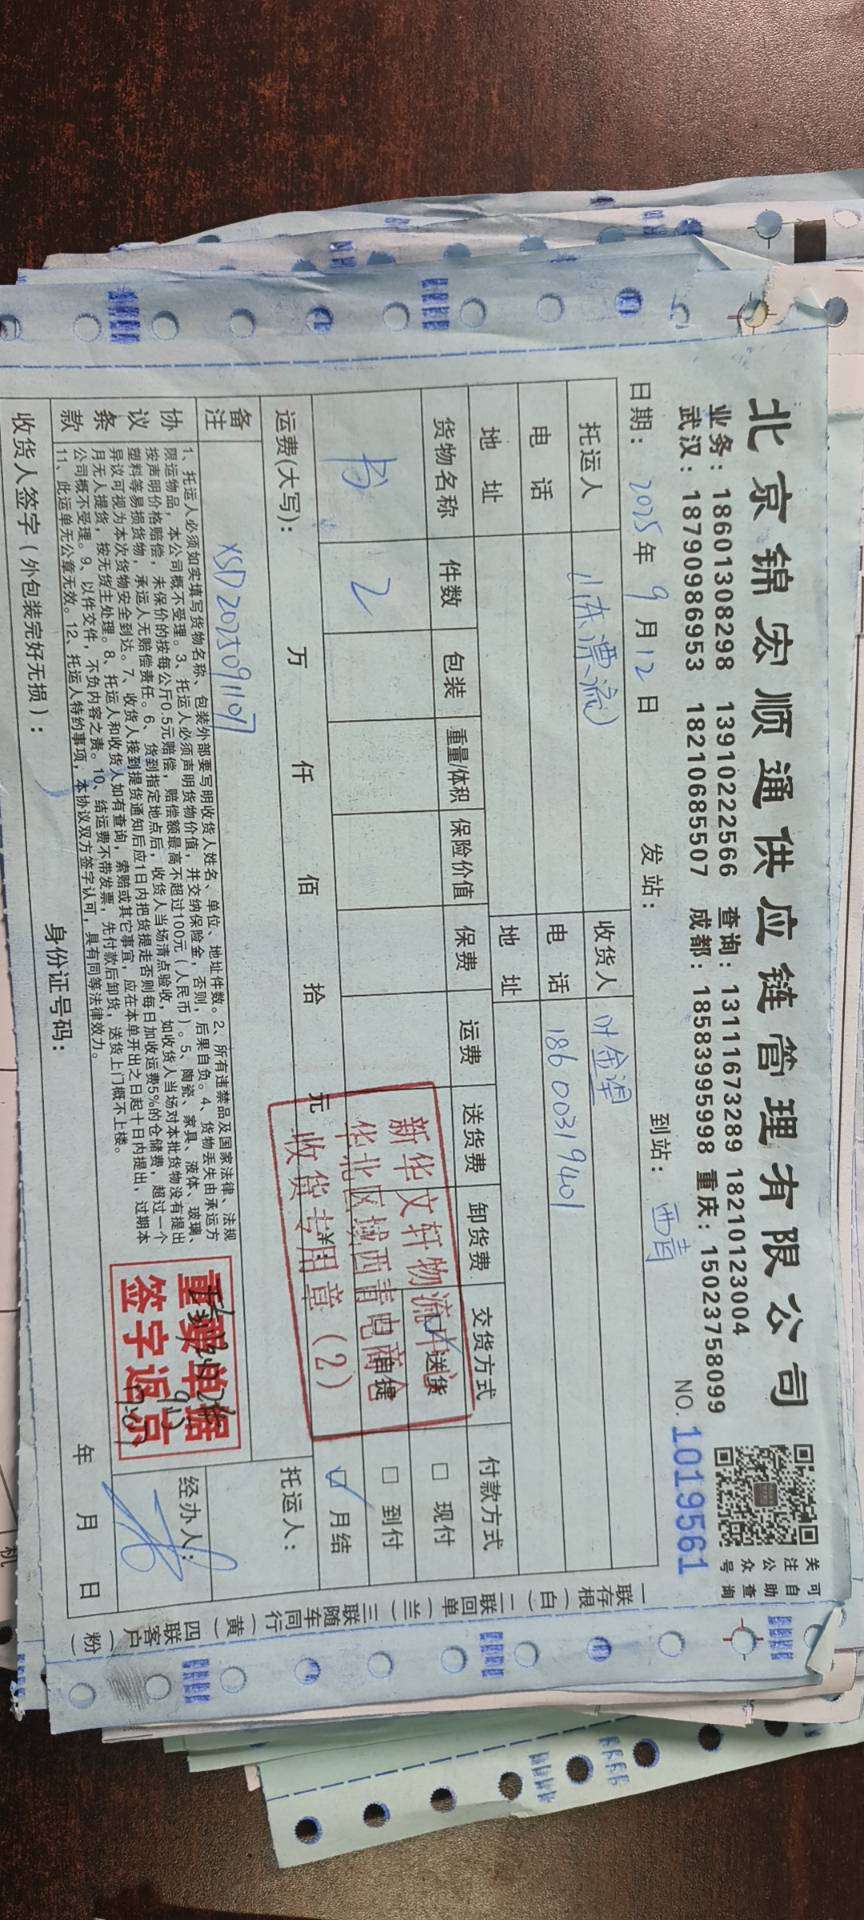 北京锦宏顺通供应链管理有限公司
业务：18601308298 13910222566 查询：13111673289 18210123004
武汉：18790986953 18210685507 成都：18583995998 重庆：15023758099
可自助查询
关注公众号
日期：2025年9月12日 发站： 到站：西青 NO.1019561
托运人 山东漂流 收货人
电话 电话 18600319401
地址 地址
货物名称 件数 包装 重量/体积 保险价值 保费 运费 送货费 卸货费 交货方式 付款方式
书 2 送货 现付
自提 到付
月结
运费(大写)： 万 仟 佰 拾 元 托运人：
新华文轩物流
华北区域西青电商仓
收货专用章（2）
备注 XSD2025091107
协议条款
1、托运人必须如实填写货物名称、包装外部要写明收货人姓名、单位、地址件数。2、所有违禁品及国家法律、法规
限运物品，本公司概不受理。3、托运人必须声明货物价值，并交纳保险金，否则，后果自负。4、货物丢失由承运方
按声明价格赔偿，未保价的按每公斤0.5元赔偿，赔偿额最高不超过100元（人民币）。5、陶瓷、家具、液体、玻璃、
塑料等易损货物，承运人无赔偿责任。6、货到指定地点后，收货人当场清点验收，如收货人当场对本批货物没有提出
异议可视为本次货物安全到达。7、收货人接到提货通知后应1日内把货提走否则每日加收运费5%的仓储费，超过一个
月无人提货，按无货主处理。8、托运人和收货人如有查询，索赔或其它事宜，应在本单开出之日起十日内提出，过期本
公司概不受理。9、以件交件，不负内容之责。10、结运费不带发票，先付款后卸货，送货上门概不上楼。
11、此运单无公章无效。12、托运人特约事项，本协议双方签字认可，具有同等法律效力。
重要单据
签字返京
经办人：
收货人签字（外包装完好无损）： 身份证号码： 年 月 日
一联存根（白）二联回单（兰）三联随车同行（黄）四联客户（粉）